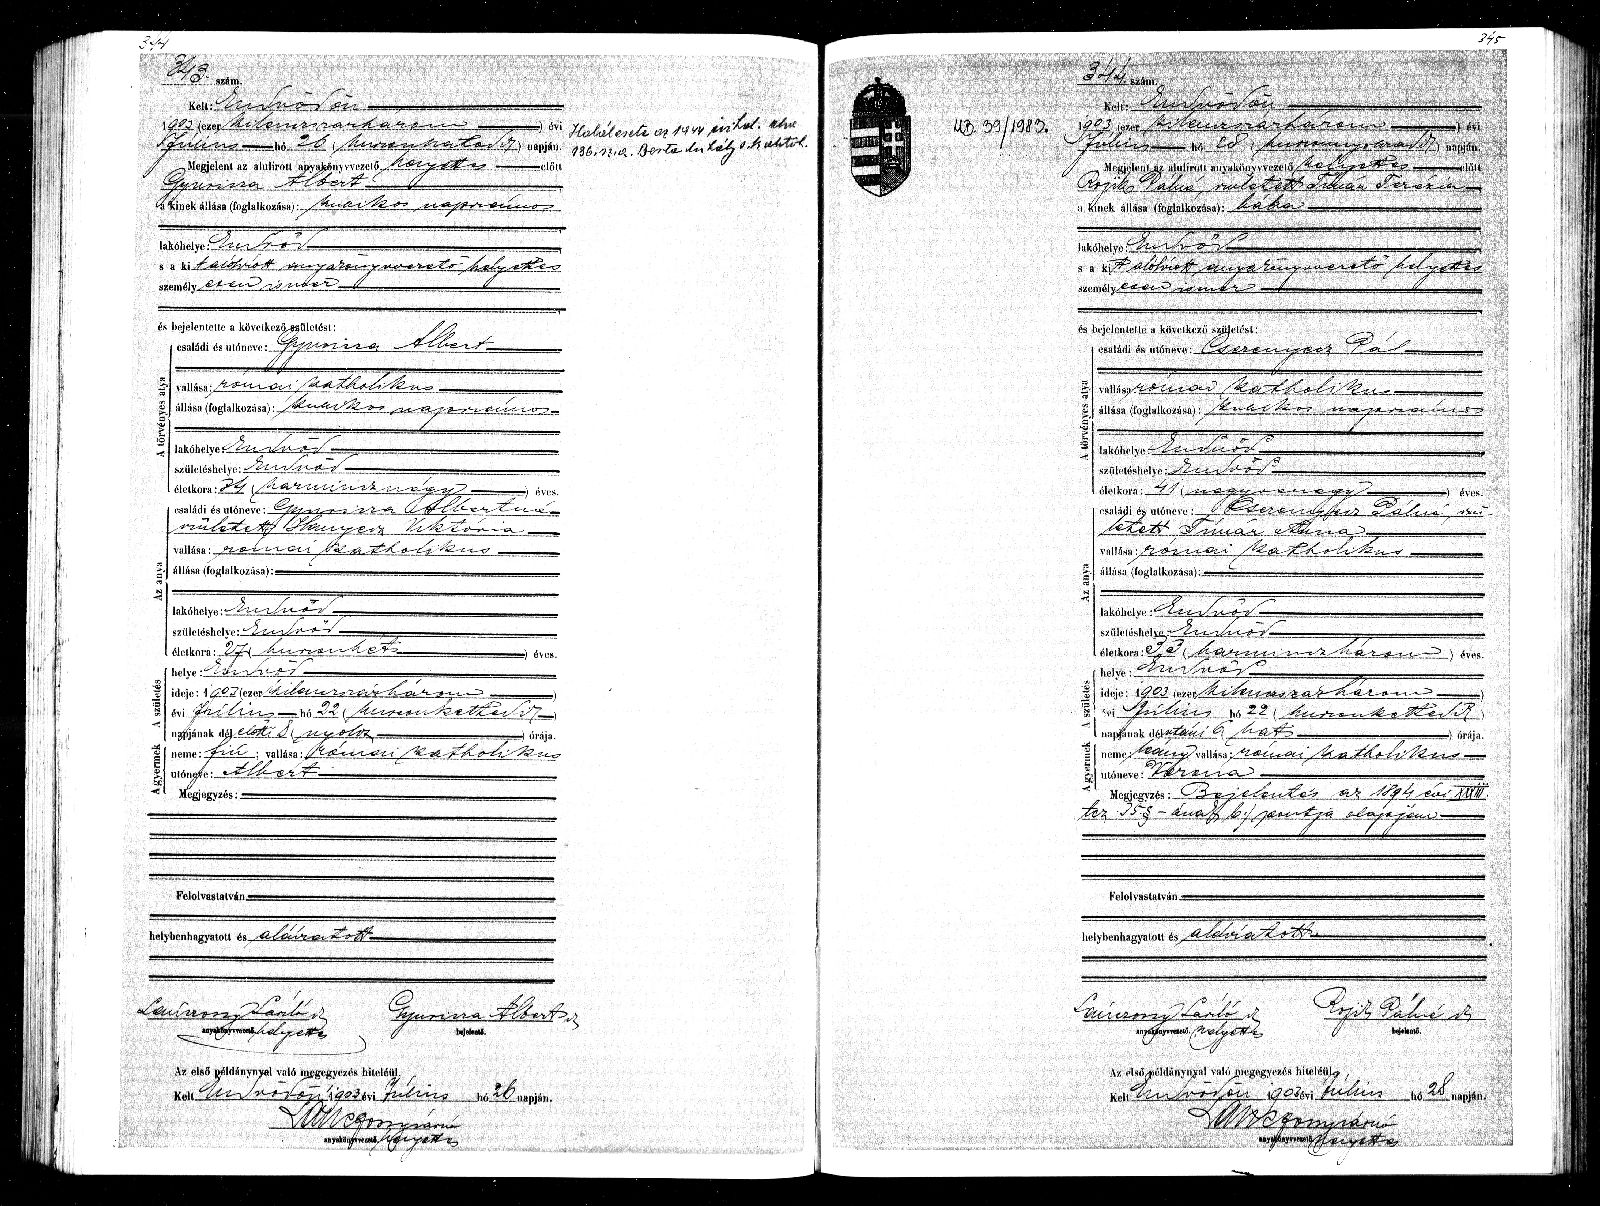 344
343. szám.
Kelt: Endrődön
1903 (ezer kilenczszázhárom) évi
Július hó 26 (huszonhatodik) napján.
Megjelent az alulirott anyakönyvvezető helyettes előtt
Gyuricza Albert
a kinek állása (foglalkozása): kuczikos napszámos
lakóhelye: Endrőd
s a kit alólirott anyakönyvvezető helyettes
személyesen ismer
és bejelentette a következő születést:
A törvényes atya
családi és utóneve: Gyuricza Albert
vallása: római katholikus
állása (foglalkozása): napszámos
lakóhelye: Endrőd
születéshelye: Endrőd
életkora: 34 (harmincznégy) éves.
Az anya
családi és utóneve: Gyuricza Albertné
született Viktória
vallása: római katholikus
állása (foglalkozása):
lakóhelye: Endrőd
születéshelye: Endrőd
életkora: 27 (huszonhét) éves.
A születés
helye: Endrőd
ideje: 1903 (ezer kilenczszázhárom)
évi Július hó 22 (huszonkettedik)
napjának dél előtti 8 nyolcz órája.
A gyermek
neme: fiú; vallása: római katholikus
utóneve: Albert
Megjegyzés:
Felolvastatván,
helybenhagyatott és aláiratott
László Gyuricza Albert
anyakönyvvezető helyettes bejelentő.
Az első példánynyal való megegyezés hiteléül.
Kelt Endrődön 1903 évi Július hó 26 napján.
anyakönyvvezető helyettes
Halálesete az 1944
136. sz. a.
345
344. szám.
UB. 39/1983.
Kelt: Endrődön
1903 (ezer kilenczszázhárom) évi
Július hó 28 (huszonnyolczadik) napján.
Megjelent az alulirott anyakönyvvezető helyettes előtt
Rojik Pálné, született Timár Terézia
a kinek állása (foglalkozása): bába
lakóhelye: Endrőd
s a kit alólirott anyakönyvvezető helyettes
személyesen ismer
és bejelentette a következő születést:
A törvényes atya
családi és utóneve: Cserenyecz Pál
vallása: római katholikus
állása (foglalkozása): napszámos
lakóhelye: Endrőd
születéshelye: Endrőd
életkora: 41 (negyvenegy) éves.
Az anya
családi és utóneve: Cserenyecz Pálné, szü-
letett Timár Anna
vallása: római katholikus
állása (foglalkozása):
lakóhelye: Endrőd
születéshelye: Endrőd
életkora: 33 (harminczhárom) éves.
A születés
helye: Endrőd
ideje: 1903 (ezer kilenczszázhárom)
évi Július hó 22 (huszonkettedik)
napjának délutáni 6 hat órája.
A gyermek
neme: leány; vallása: római katholikus
utóneve: Verona
Megjegyzés: Bejelentés az 1894 évi XXXIII.
tcz 35§-ának b) pontja alapján
Felolvastatván
helybenhagyatott és aláiratott
László Rojik Pálné
anyakönyvvezető helyettes bejelentő.
Az első példánynyal való megegyezés hiteléül.
Kelt Endrődön 1903 évi Július hó 28 napján.
anyakönyvvezető helyettes